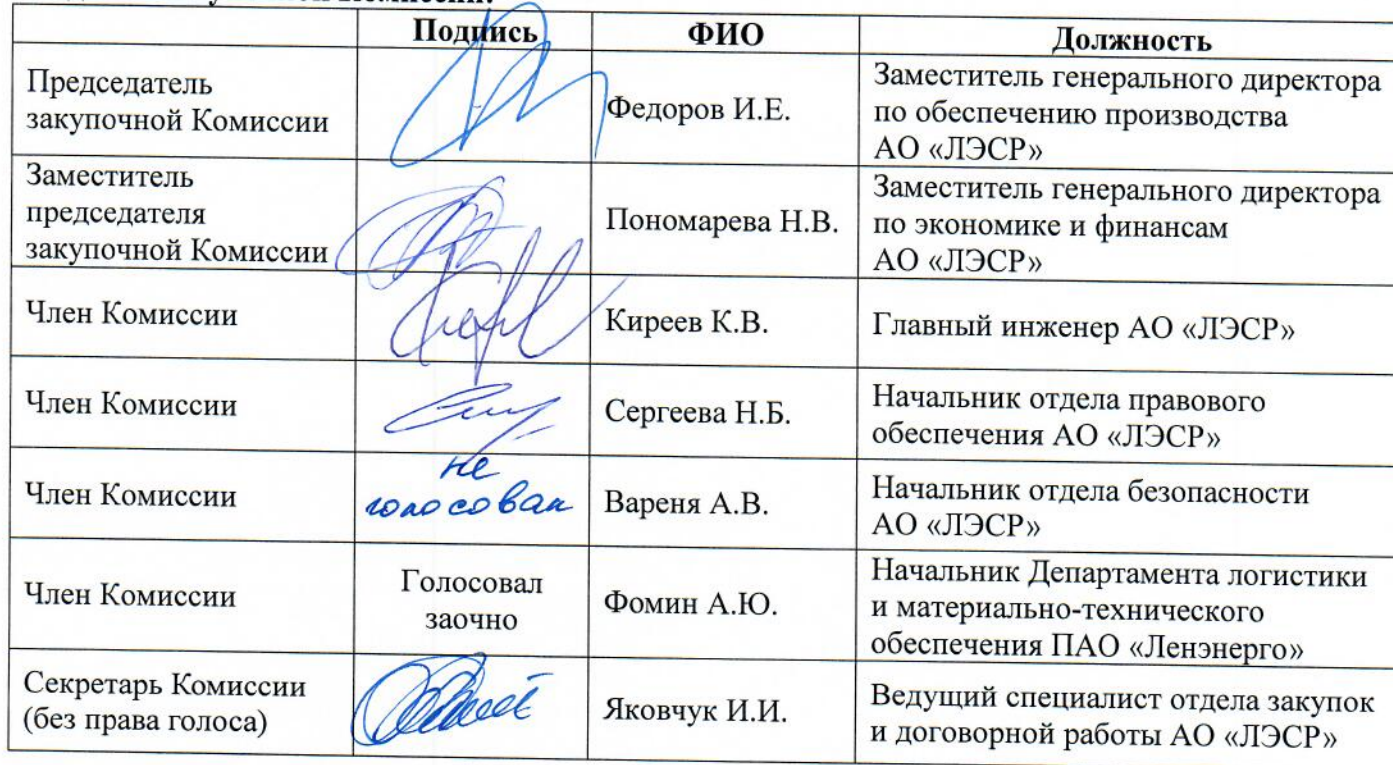 Комиссии:
Подпись ФИО Должность
Председатель
закупочной Комиссии
Федоров И.Е.
Заместитель генерального директора
по обеспечению производства
АО «ЛЭСР»
Заместитель
председателя
закупочной Комиссии
Пономарева Н.В.
Заместитель генерального директора
по экономике и финансам
АО «ЛЭСР»
Член Комиссии
Киреев К.В.
Главный инженер АО «ЛЭСР»
Член Комиссии
Сергеева Н.Б.
Начальник отдела правового
обеспечения АО «ЛЭСР»
Член Комиссии
не
голосовал
Вареня А.В.
Начальник отдела безопасности
АО «ЛЭСР»
Член Комиссии
Голосовал
заочно
Фомин А.Ю.
Начальник Департамента логистики
и материально-технического
обеспечения ПАО «Ленэнерго»
Секретарь Комиссии
(без права голоса)
Яковчук И.И.
Ведущий специалист отдела закупок
и договорной работы АО «ЛЭСР»